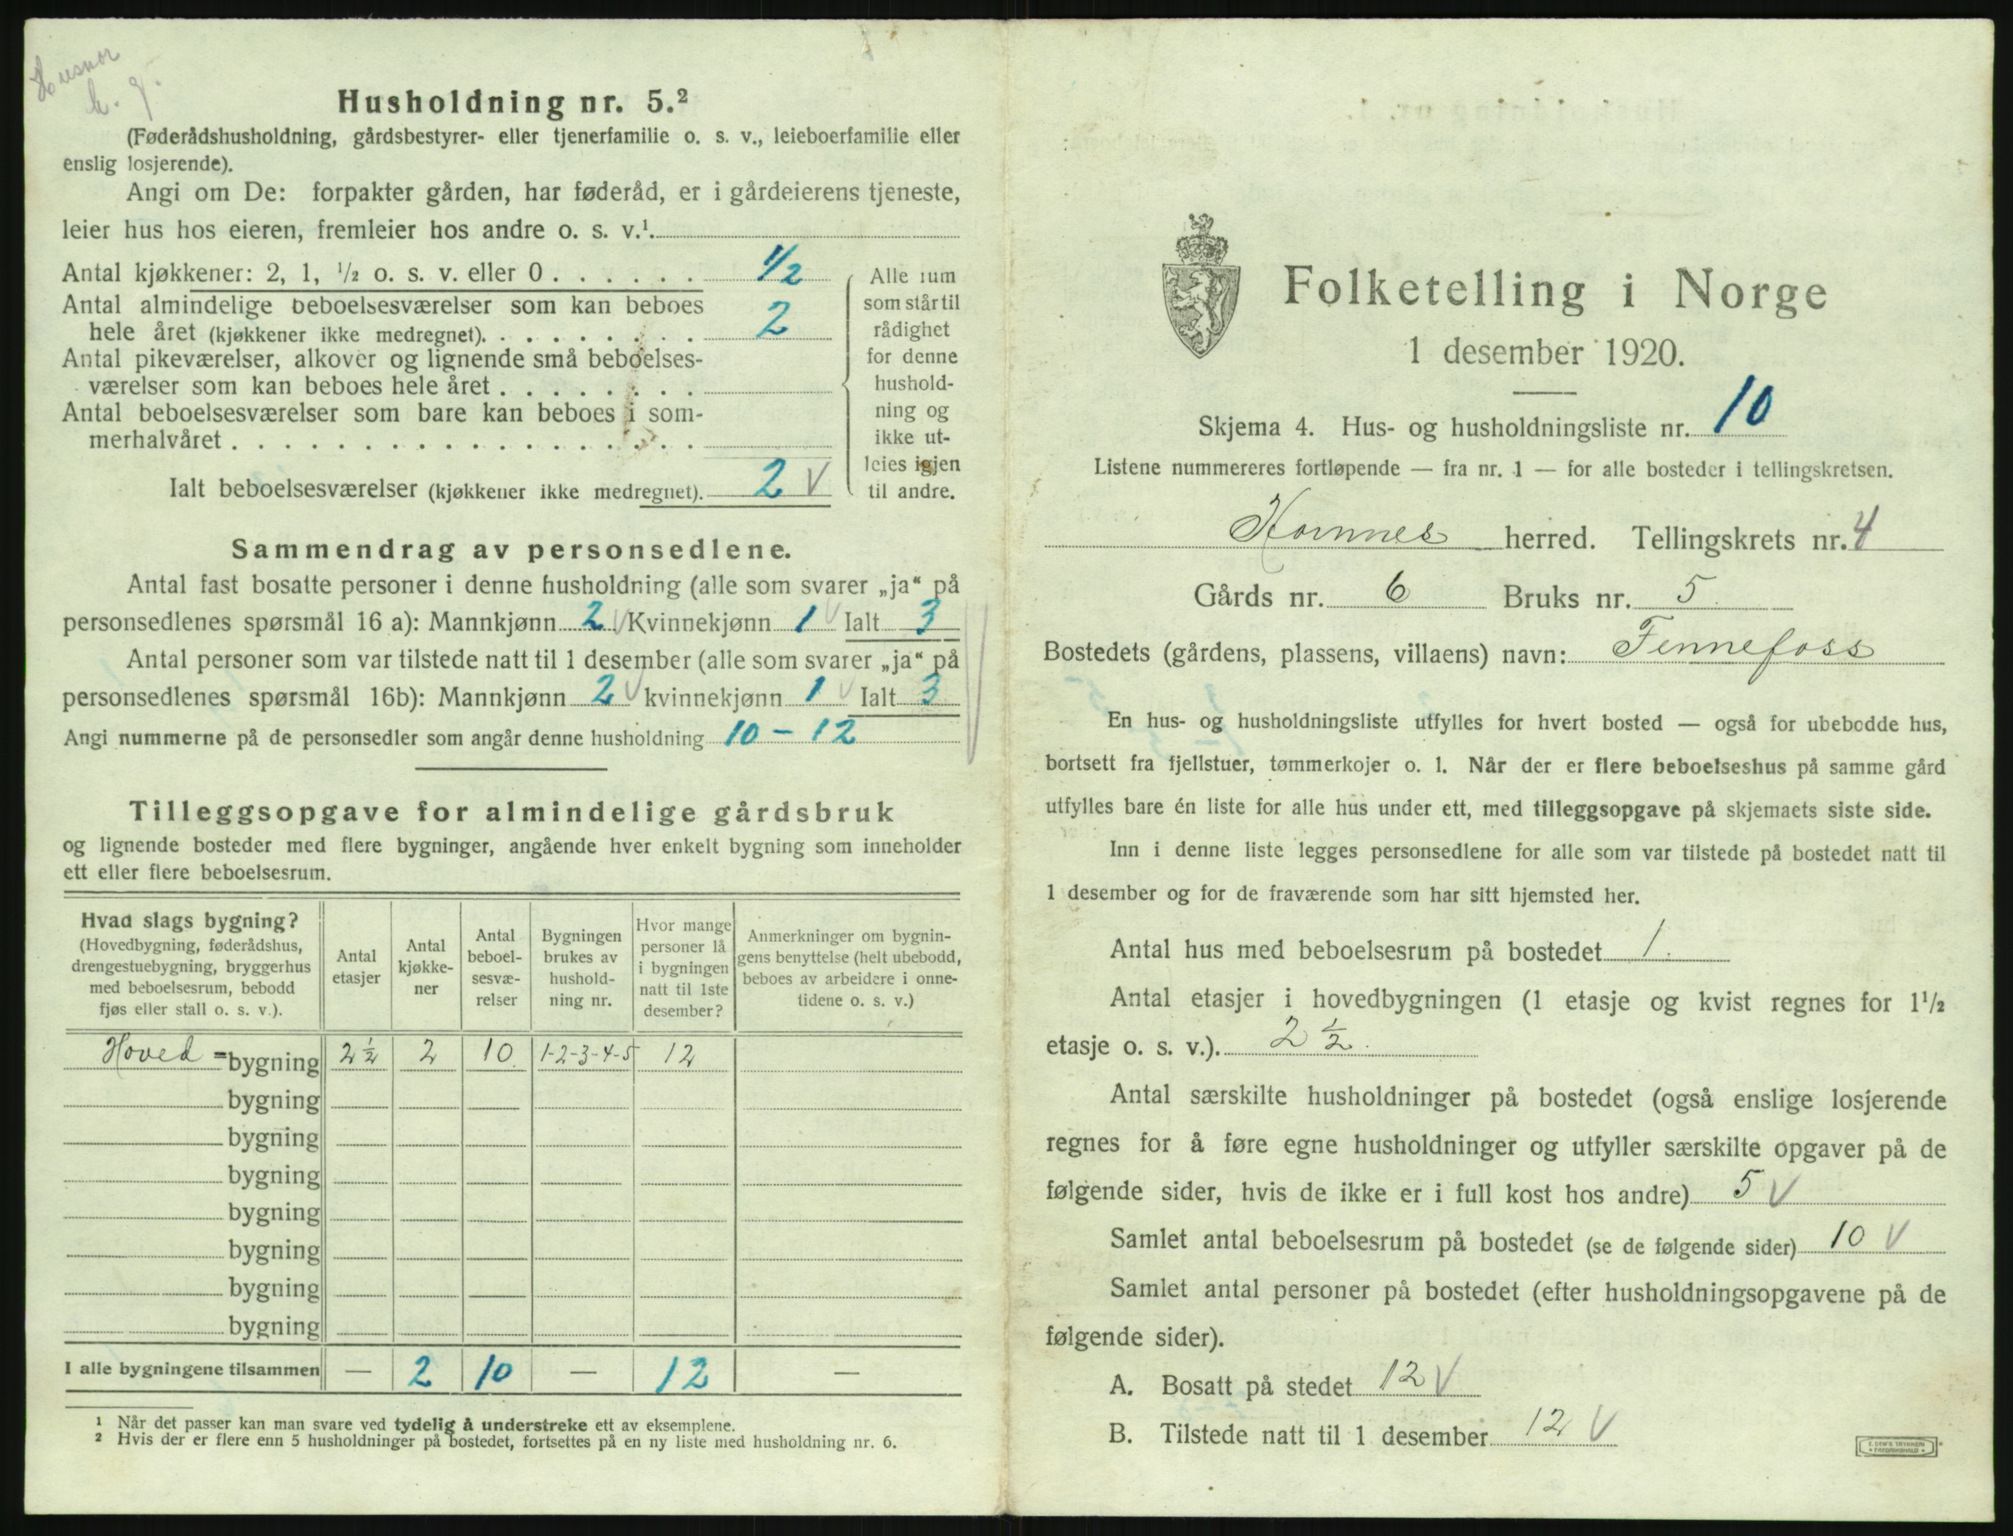 Husnr
b. g.
Husholdning nr. 5.²
(Føderådshusholdning, gårdsbestyrer- eller tjenerfamilie o. s. v., leieboerfamilie eller
enslig losjerende).
Angi om De: forpakter gården, har føderåd, er i gårdeierens tjeneste,
leier hus hos eieren, fremleier hos andre o. s. v.¹
Antal kjøkkener: 2, 1, ¹/₂ o. s. v. eller 0 . . . . . . 1/2
Antal almindelige beboelsesværelser som kan beboes
hele året (kjøkkener ikke medregnet). . . . . . . . . 2
Antal pikeværelser, alkover og lignende små beboelses-
værelser som kan beboes hele året . . . . . . . .
Antal beboelsesværelser som bare kan beboes i som-
merhalvåret . . . . . . . . . . . . . . . . . .
Ialt beboelsesværelser (kjøkkener ikke medregnet). 2 V
Alle rum
som står til
rådighet
for denne
hushold-
ning og
ikke ut-
leies igjen
til andre.
Sammendrag av personsedlene.
Antal fast bosatte personer i denne husholdning (alle som svarer „ja“ på
personsedlenes spørsmål 16 a): Mannkjønn 2 V Kvinnekjønn 1 V Ialt 3
Antal personer som var tilstede natt til 1 desember (alle som svarer „ja“ på
personsedlenes spørsmål 16b): Mannkjønn 2 V kvinnekjønn 1 V Ialt 3
Angi nummerne på de personsedler som angår denne husholdning 10 - 12
Tilleggsopgave for almindelige gårdsbruk
og lignende bosteder med flere bygninger, angående hver enkelt bygning som inneholder
ett eller flere beboelsesrum.
Hvad slags bygning?
(Hovedbygning, føderådshus,
drengestuebygning, bryggerhus
med beboelsesrum, bebodd
fjøs eller stall o. s. v.).
Antal
etasjer
Antal
kjøkke-
ner
Antal
beboel-
sesvæ-
relser
Bygningen
brukes av
hushold-
ning nr.
Hvor mange
personer lå
i bygningen
natt til 1ste
desember?
Anmerkninger om bygnin-
gens benyttelse (helt ubebodd,
beboes av arbeidere i onne-
tidene o. s. v.)
Hoved = bygning 2 ½ 2 10 1-2-3-4-5 12
bygning
bygning
bygning
bygning
bygning
bygning
bygning
I alle bygningene tilsammen — 2 10 — 12 —
¹ Når det passer kan man svare ved tydelig å understreke ett av eksemplene.
² Hvis der er flere enn 5 husholdninger på bostedet, fortsettes på en ny liste med husholdning nr. 6.
Folketelling i Norge
1 desember 1920.
Skjema 4. Hus- og husholdningsliste nr. 10
Listene nummereres fortløpende — fra nr. 1 — for alle bosteder i tellingskretsen.
Hornnes herred. Tellingskrets nr. 4
Gårds nr. 6 Bruks nr. 5
Bostedets (gårdens, plassens, villaens) navn: Fennefoss
En hus- og husholdningsliste utfylles for hvert bosted — også for ubebodde hus,
bortsett fra fjellstuer, tømmerkojer o. l. Når der er flere beboelseshus på samme gård
utfylles bare én liste for alle hus under ett, med tilleggsopgave på skjemaets siste side.
Inn i denne liste legges personsedlene for alle som var tilstede på bostedet natt til
1 desember og for de fraværende som har sitt hjemsted her.
Antal hus med beboelsesrum på bostedet 1.
Antal etasjer i hovedbygningen (1 etasje og kvist regnes for 1¹/₂
etasje o. s. v.). 2 ½.
Antal særskilte husholdninger på bostedet (også enslige losjerende
regnes for å føre egne husholdninger og utfyller særskilte opgaver på de
følgende sider, hvis de ikke er i full kost hos andre) 5 V
Samlet antal beboelsesrum på bostedet (se de følgende sider) 10 V
Samlet antal personer på bostedet (efter husholdningsopgavene på de
følgende sider).
A. Bosatt på stedet 12 V
B. Tilstede natt til 1 desember 12 V